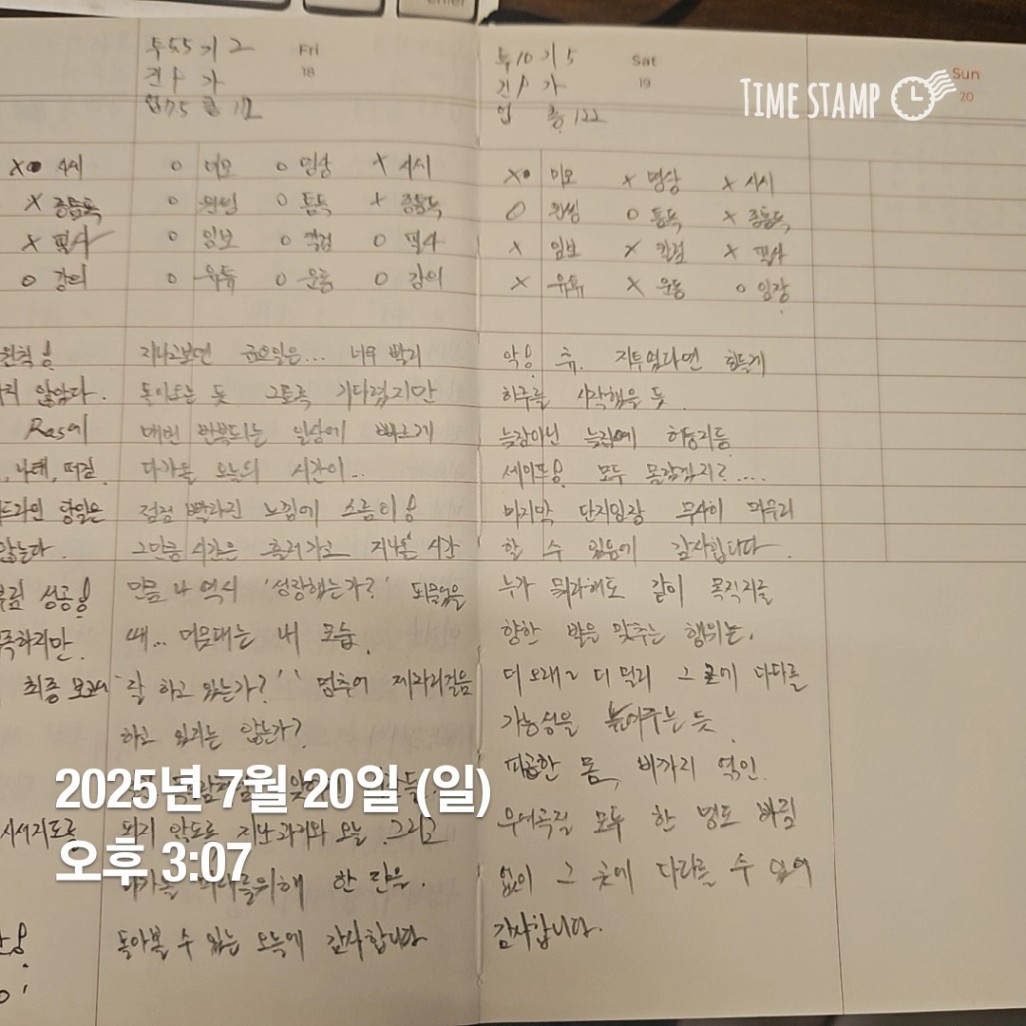 enter
투5.5 기2
Fri
18
건1 가
업7.5 총17
투10 기5
Sat
19
건1 가
업 총122
TIME STAMP
Sun
20
X 사시
X 중통독
X 필사
O 강의
O 미모 O 명상 X 사시
O 원씽 O 통독 X 중통독
O 임보 O 칼럼 O 필사
O 유튜 O 운동 O 강의
X 미모 X 명상 X 사시
O 원씽 O 통독 X 중통독
X 임보 X 칼럼 X 필사
X 유튜 X 운동 O 임장
원칙!
않았다.
Ras에
나태,
당일은
않는다.
성공!
최종 보고서
지나고보면 금요일은... 너무 빨리
돌아오는 듯 그토록 기다렸지만
매번 반복되는 일상에 빠르게
다가올 오늘의 시간이...
점점 빨라진 느낌에 소름이!
그만큼 시간은 흘러가고 지나온 시간
만큼 나 역시 '성장했는가?' 되물었을
때... 머뭇대는 내 모습.
'잘 하고 있는가?' '멈추어 제자리걸음
하고 있지는 않는가?
되지 않도록 지난 과거와 오늘 그리고
미래를위해 한 걸음.
돌아볼 수 있는 오늘에 감사합니다
악! 휴. 지투업라면 힘들게
하루를 시작했을 듯.
늦잠아닌 늦잠에 허둥지둥
세이프! 모두 몰랐겠지?....
마지막 단지임장 무사히 마무리
할 수 있음에 감사합니다.
누가 뭐라해도 같이 목적지를
향한 발을 맞추는 행위는.
더 오래~ 더 멀리 그 곳에 다다를
가능성을 높여주는 듯.
피곤한 몸, 비까지 엮인.
우여곡절 모두 한 명도 빠짐
없이 그 곳에 다다를 수 있어
감사합니다.
2025년 7월 20일 (일)
오후 3:07